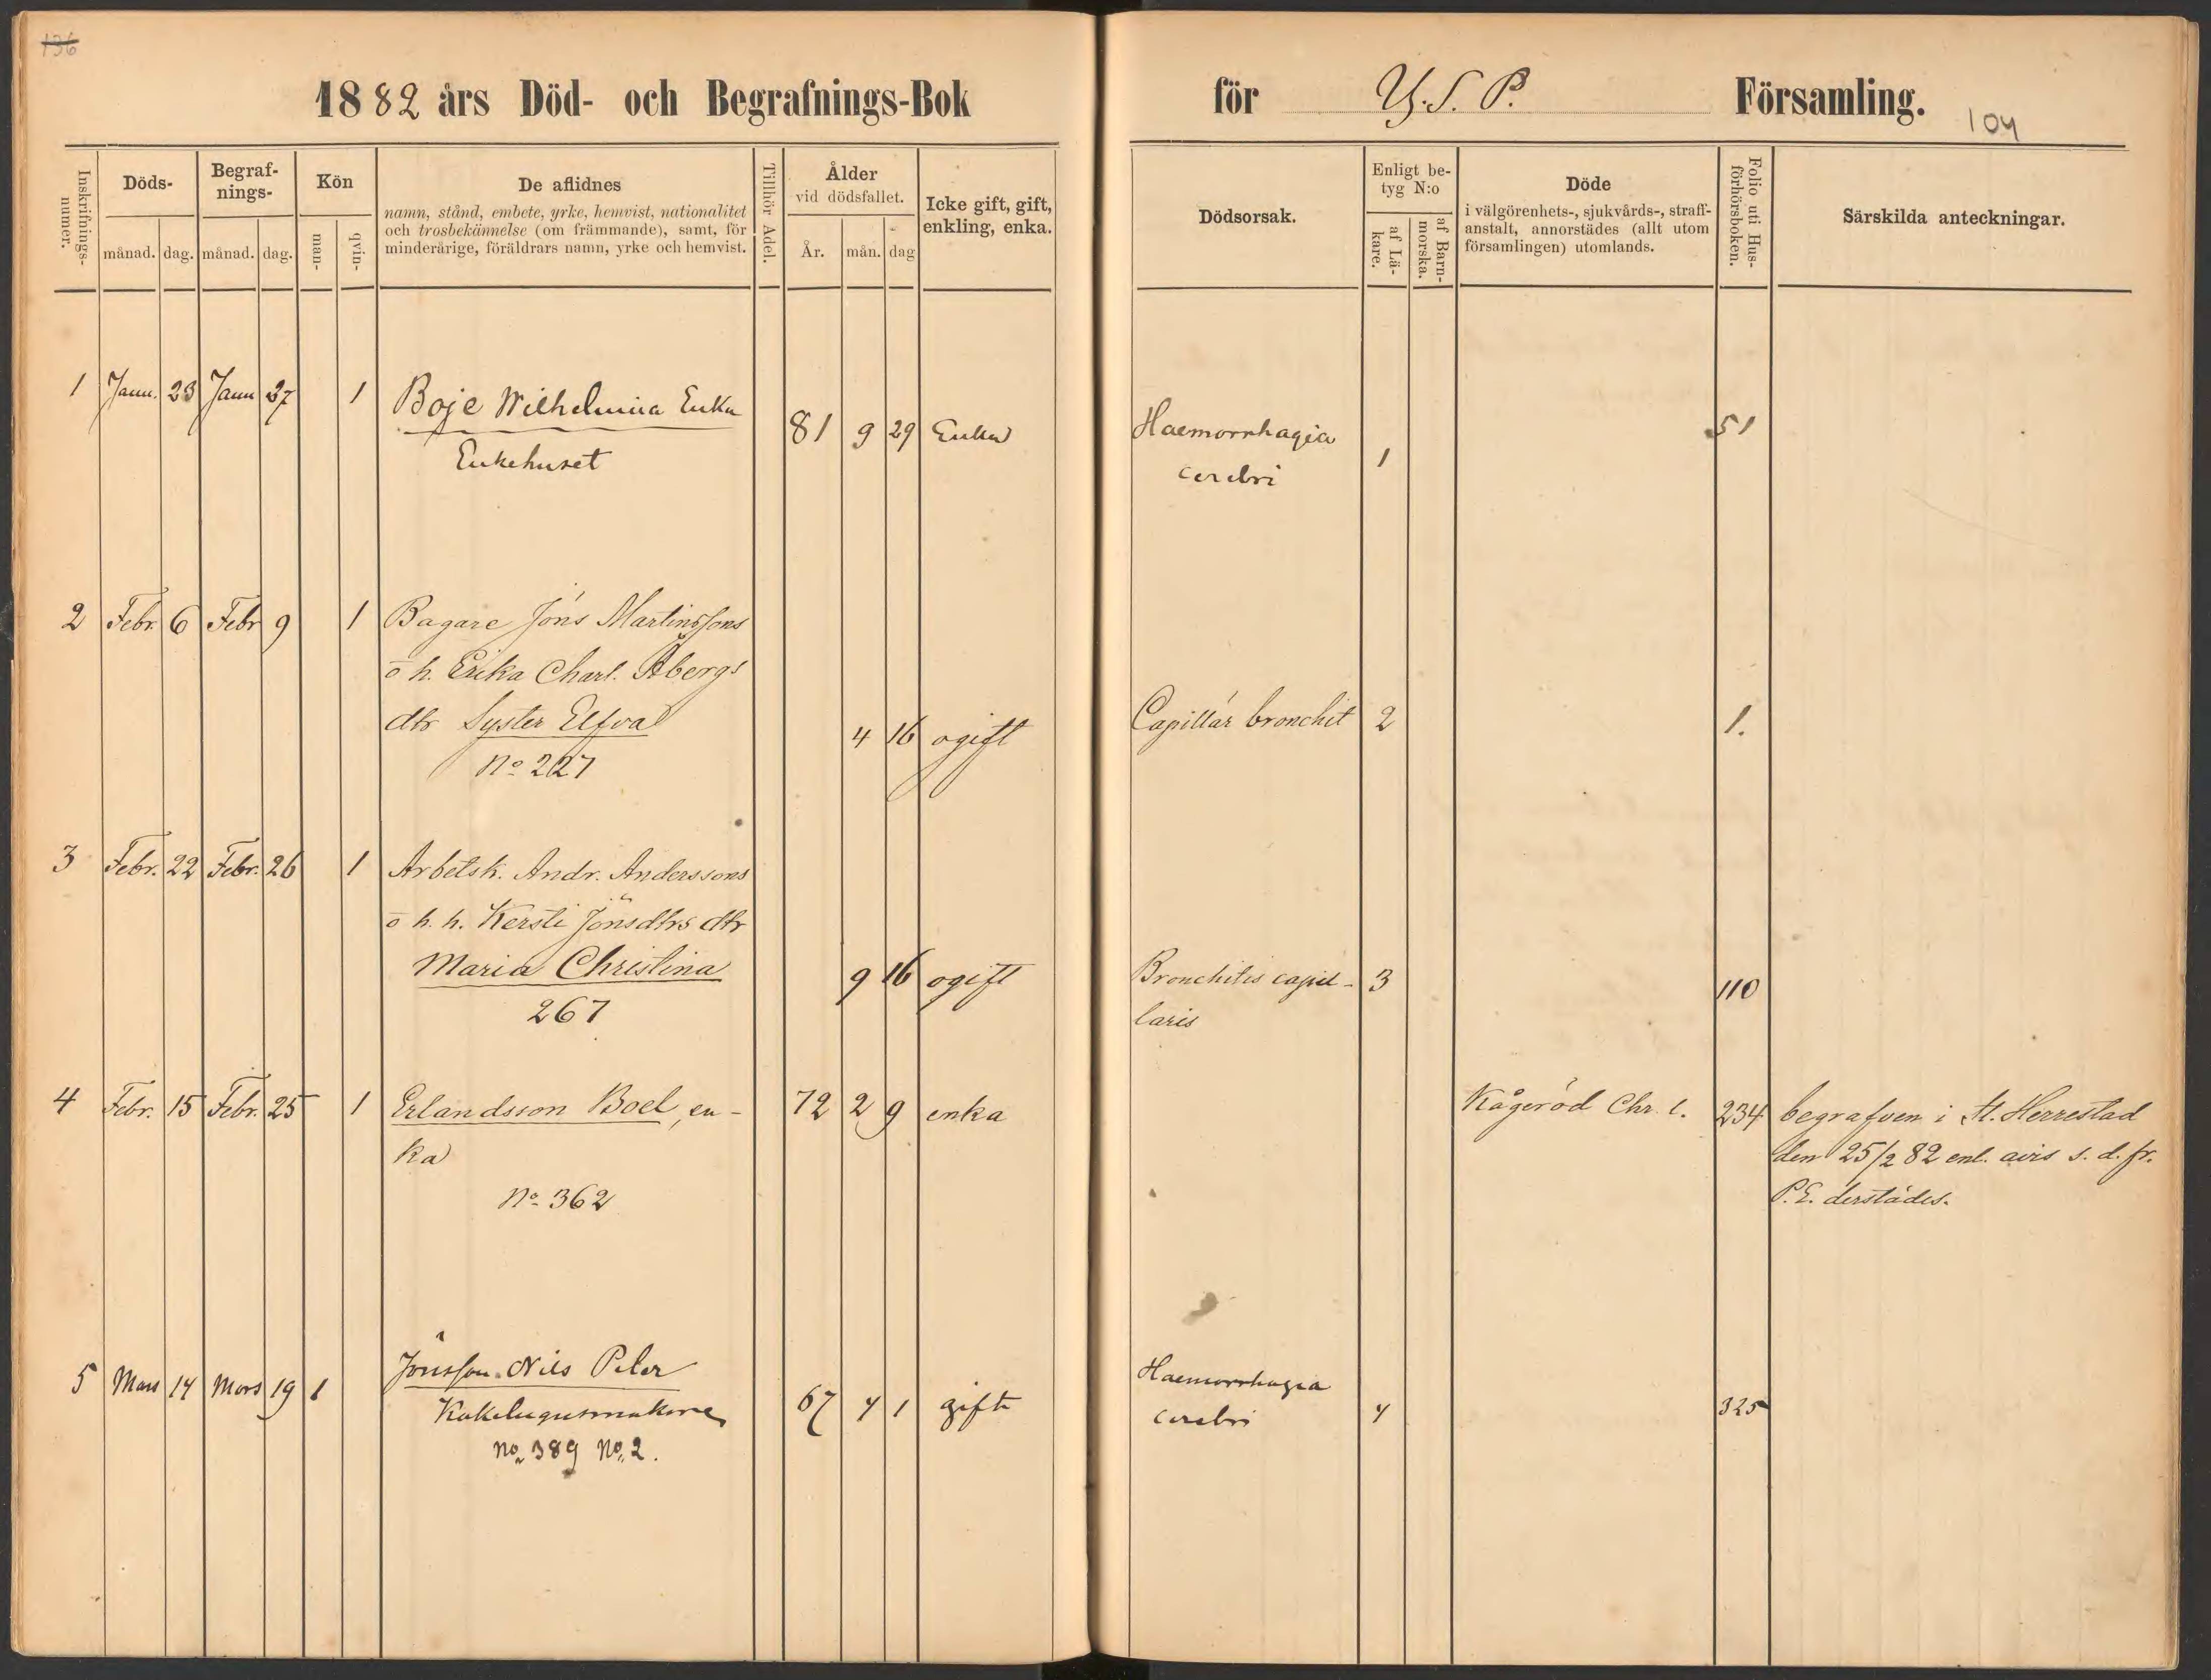 136
1882 års Död- och Begrafnings-Bok
för Y. S. P. Församling.
104
Inskrifnings-numer.
Döds-
månad. dag.
Begraf-
nings-
månad. dag.
Kön
man- qvin-
De aflidnes
namn, stånd, embete, yrke, hemvist, nationalitet
och trosbekännelse (om främmande), samt, för
minderårige, föräldrars namn, yrke och hemvist.
Tillhör Adel.
Ålder
vid dödsfallet.
År. mån. dag
Icke gift, gift,
enkling, enka.
Dödsorsak.
Enligt be-
tyg N:o
af Lä-
kare.
af Barn-
morska.
Döde
i välgörenhets-, sjukvårds-, straff-
anstalt, annorstädes (allt utom
församlingen) utomlands.
Folio uti Hus-
förhörsboken.
Särskilda anteckningar.
1 Janu. 23 Janu 27 1 Boje Wilhelmina Enka
Enkehuset
81 9 29 Enka
Haemorrhagia
cerebri
1
51
2 Febr. 6 Febr 9 1 Bagare Jöns Martinssons
o h. Erika Charl. Åbergs
dtr Syster Elfva
No 227
4 16 ogift
Capillär bronchit 2
1.
3 Febr. 22 Febr. 26 1 Arbetsk. Andr. Anderssons
o h. h. Kersti Jönsdtrs dtr
Maria Christina
267
9 16 ogift
Bronchitis capil-
laris
3
110
4 Febr. 15 Febr. 25 1 Erlandsson Boel, en-
ka
No 362
72 2 9 enka
Kågeröd Chr. l. 234 begrafven i St. Herrestad
den 25/2 82 enl. avis s. d. fr.
P.E. derstädes.
5 Mars 14 Mars 19 1
Jönsson Nils Peter
Kakelugnsmakare
No 389 No 2.
67 4 1 gift
Haemorrhagia
cerebri
4
325